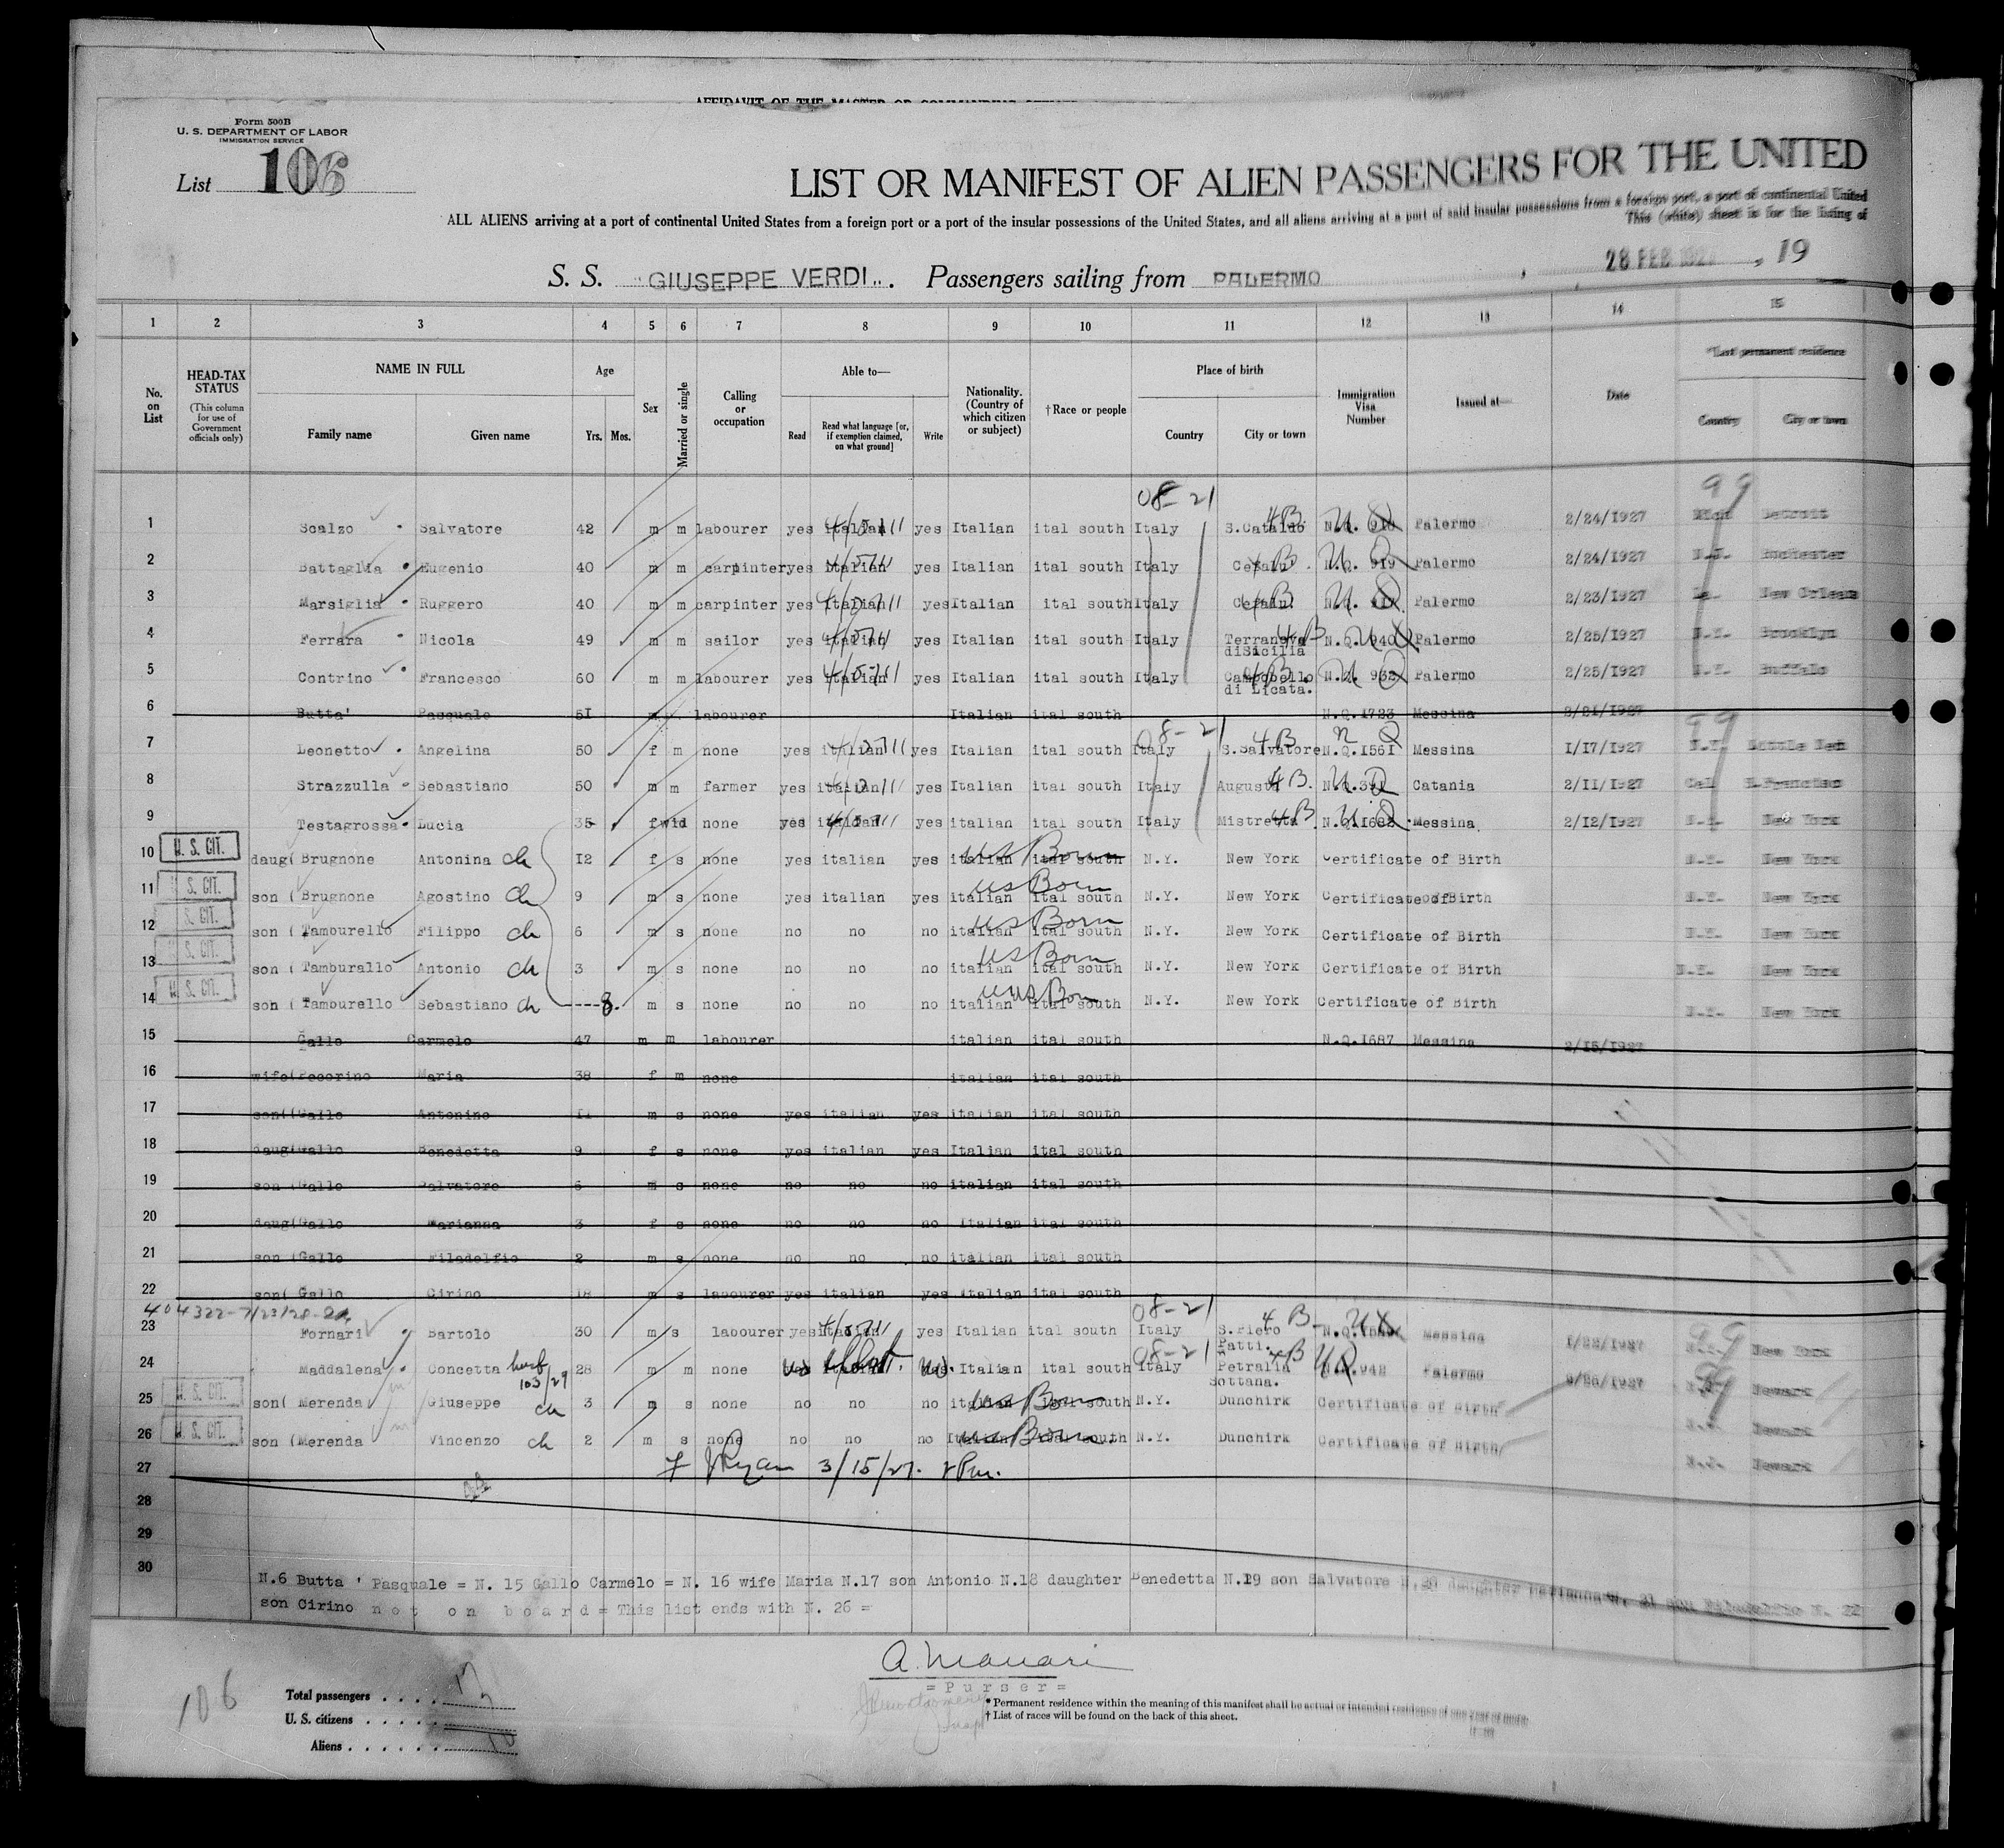 AFFIDAVIT OF THE MASTER OR COMMANDING
Form 500B
U. S. DEPARTMENT OF LABOR
IMMIGRATION SERVICE
List 106
LIST OR MANIFEST OF ALIEN PASSENGERS FOR THE UNITED
ALL ALIENS arriving at a port of continental United States from a foreign port or a port of the insular possessions of the United States, and all aliens arriving at a port of said insular possessions from a foreign port, a port of continental United
This (white) sheet is for the listing of
S. S. GIUSEPPE VERDI. Passengers sailing from PALERMO , 28 FEB 1927 , 19
1 2 3 4 5 6 7 8 9 10 11 12 13 14 15
No. on List
HEAD-TAX STATUS (This column for use of Government officials only)
NAME IN FULL Family name Given name
Age Yrs. Mos.
Sex
Married or single
Calling or occupation
Able to— Read Read what language [or, if exemption claimed, on what ground] Write
Nationality. (Country of which citizen or subject)
†Race or people
Place of birth Country City or town
Immigration Visa Number
Issued at—
Date
*Last permanent residence Country City or town
08-21 99
1 Scalzo Salvatore 42 m m labourer yes italian yes Italian ital south Italy S.Cataldo 4B N.Q. Palermo 2/24/1927 Mich Detroit
2 Battaglia Eugenio 40 m m carpinter yes italian yes Italian ital south Italy Cefalu. N.Q. 919 Palermo 2/24/1927 Rochester
3 Marsiglia Ruggero 40 m m carpinter yes italian yes Italian ital south Italy Cefalu. Palermo 2/23/1927 La. New Orleans
4 Ferrara Nicola 49 m m sailor yes italian yes Italian ital south Italy Terranova diSicilia 4B N.Q. 940 Palermo 2/25/1927 N.Y. Brooklyn
5 Contrino Francesco 60 m m labourer yes italian yes Italian ital south Italy Campobello di Licata. N.Q. 932 Palermo 2/25/1927 N.Y. Buffalo
6 Butta' Pasquale 51 m labourer Italian ital south N.Q.1723 Messina 2/21/1927
08-21 99
7 Leonetto Angelina 50 f m none yes italian yes Italian ital south Italy S.Salvatore 4B N.Q.1561 Messina 1/17/1927 N.Y.
8 Strazzulla Sebastiano 50 m m farmer yes italian yes Italian ital south Italy Augusta 4B. Catania 2/11/1927 Cal S.Francisco
9 Testagrossa Lucia 35 f wid none yes italian yes italian ital south Italy Mistretta 4B N.Q. Messina 2/12/1927 N.Y. New York
10 U. S. CIT. daug( Brugnone Antonina ch 12 f s none yes italian yes italian ital south US Born N.Y. New York Certificate of Birth N.Y. New York
11 U. S. CIT. son ( Brugnone Agostino ch 9 m s none yes italian yes italian ital south US Born N.Y. New York Certificate of Birth N.Y. New York
12 S. CIT. son ( Tamburello Filippo ch 6 m s none no no no italian ital south US Born N.Y. New York Certificate of Birth N.Y. New York
13 S. CIT. son ( Tamburallo Antonio ch 3 m s none no no no italian ital south US Born N.Y. New York Certificate of Birth N.Y. New York
14 U. S. CIT. son ( Tamburello Sebastiano ch ----8. m s none no no no italian ital south US Born N.Y. New York Certificate of Birth N.Y. New York
15 Gallo Carmelo 47 m m labourer italian ital south N.Q.1687 Messina 2/15/1927
16 wife( Pecorino Maria 38 f m none italian ital south
17 son( Gallo Antonino 11 m s none yes italian yes italian ital south
18 daug( Gallo Benedetta 9 f s none yes italian yes Italian ital south
19 son ( Gallo Salvatore 5 m s none no no no italian ital south
20 daug( Gallo Marianna 3 f s none no no no Italian ital south
21 son ( Gallo Filadelfio 2 m s none no no no italian ital south
22 son( Gallo Cirino 18 m s labourer yes italian yes italian ital south
404322-7/23/28 08-21
23 Fornari Bartolo 30 m s labourer yes italian yes Italian ital south Italy S.Piero Patti. 4B N.Q. Messina 1/22/1927 99 New York
24 Maddalena Concetta husb 103/29 28 m m none yes italian yes Italian ital south 08-21 Italy Petralia Sottana. 4B 942 Palermo 2/26/1927 Newark
25 U. S. CIT. son( Merenda Giuseppe ch 3 m s none no no no italian ital south US Born N.Y. Dunchirk Certificate of Birth Newark
26 U. S. CIT. son ( Merenda Vincenzo ch 2 m s none no no no Italian ital south US Born N.Y. Dunchirk Certificate of Birth N.J. Newark
27 Ryan 3/15/27.
28
29
30
N.6 Butta ' Pasquale = N. 15 Gallo Carmelo = N. 16 wife Maria N.17 son Antonio N.18 daughter Benedetta N.19 son Salvatore N.20 daughter Marianna N. 21 son Filadelfio N. 22
son Cirino not on board = This list ends with N. 26 =
A. Manari
= Purser =
106
Total passengers . . . . 17
U. S. citizens . . . . .
Aliens . . . . . . 10
* Permanent residence within the meaning of this manifest shall be actual or intended residence of one year or more.
† List of races will be found on the back of this sheet.